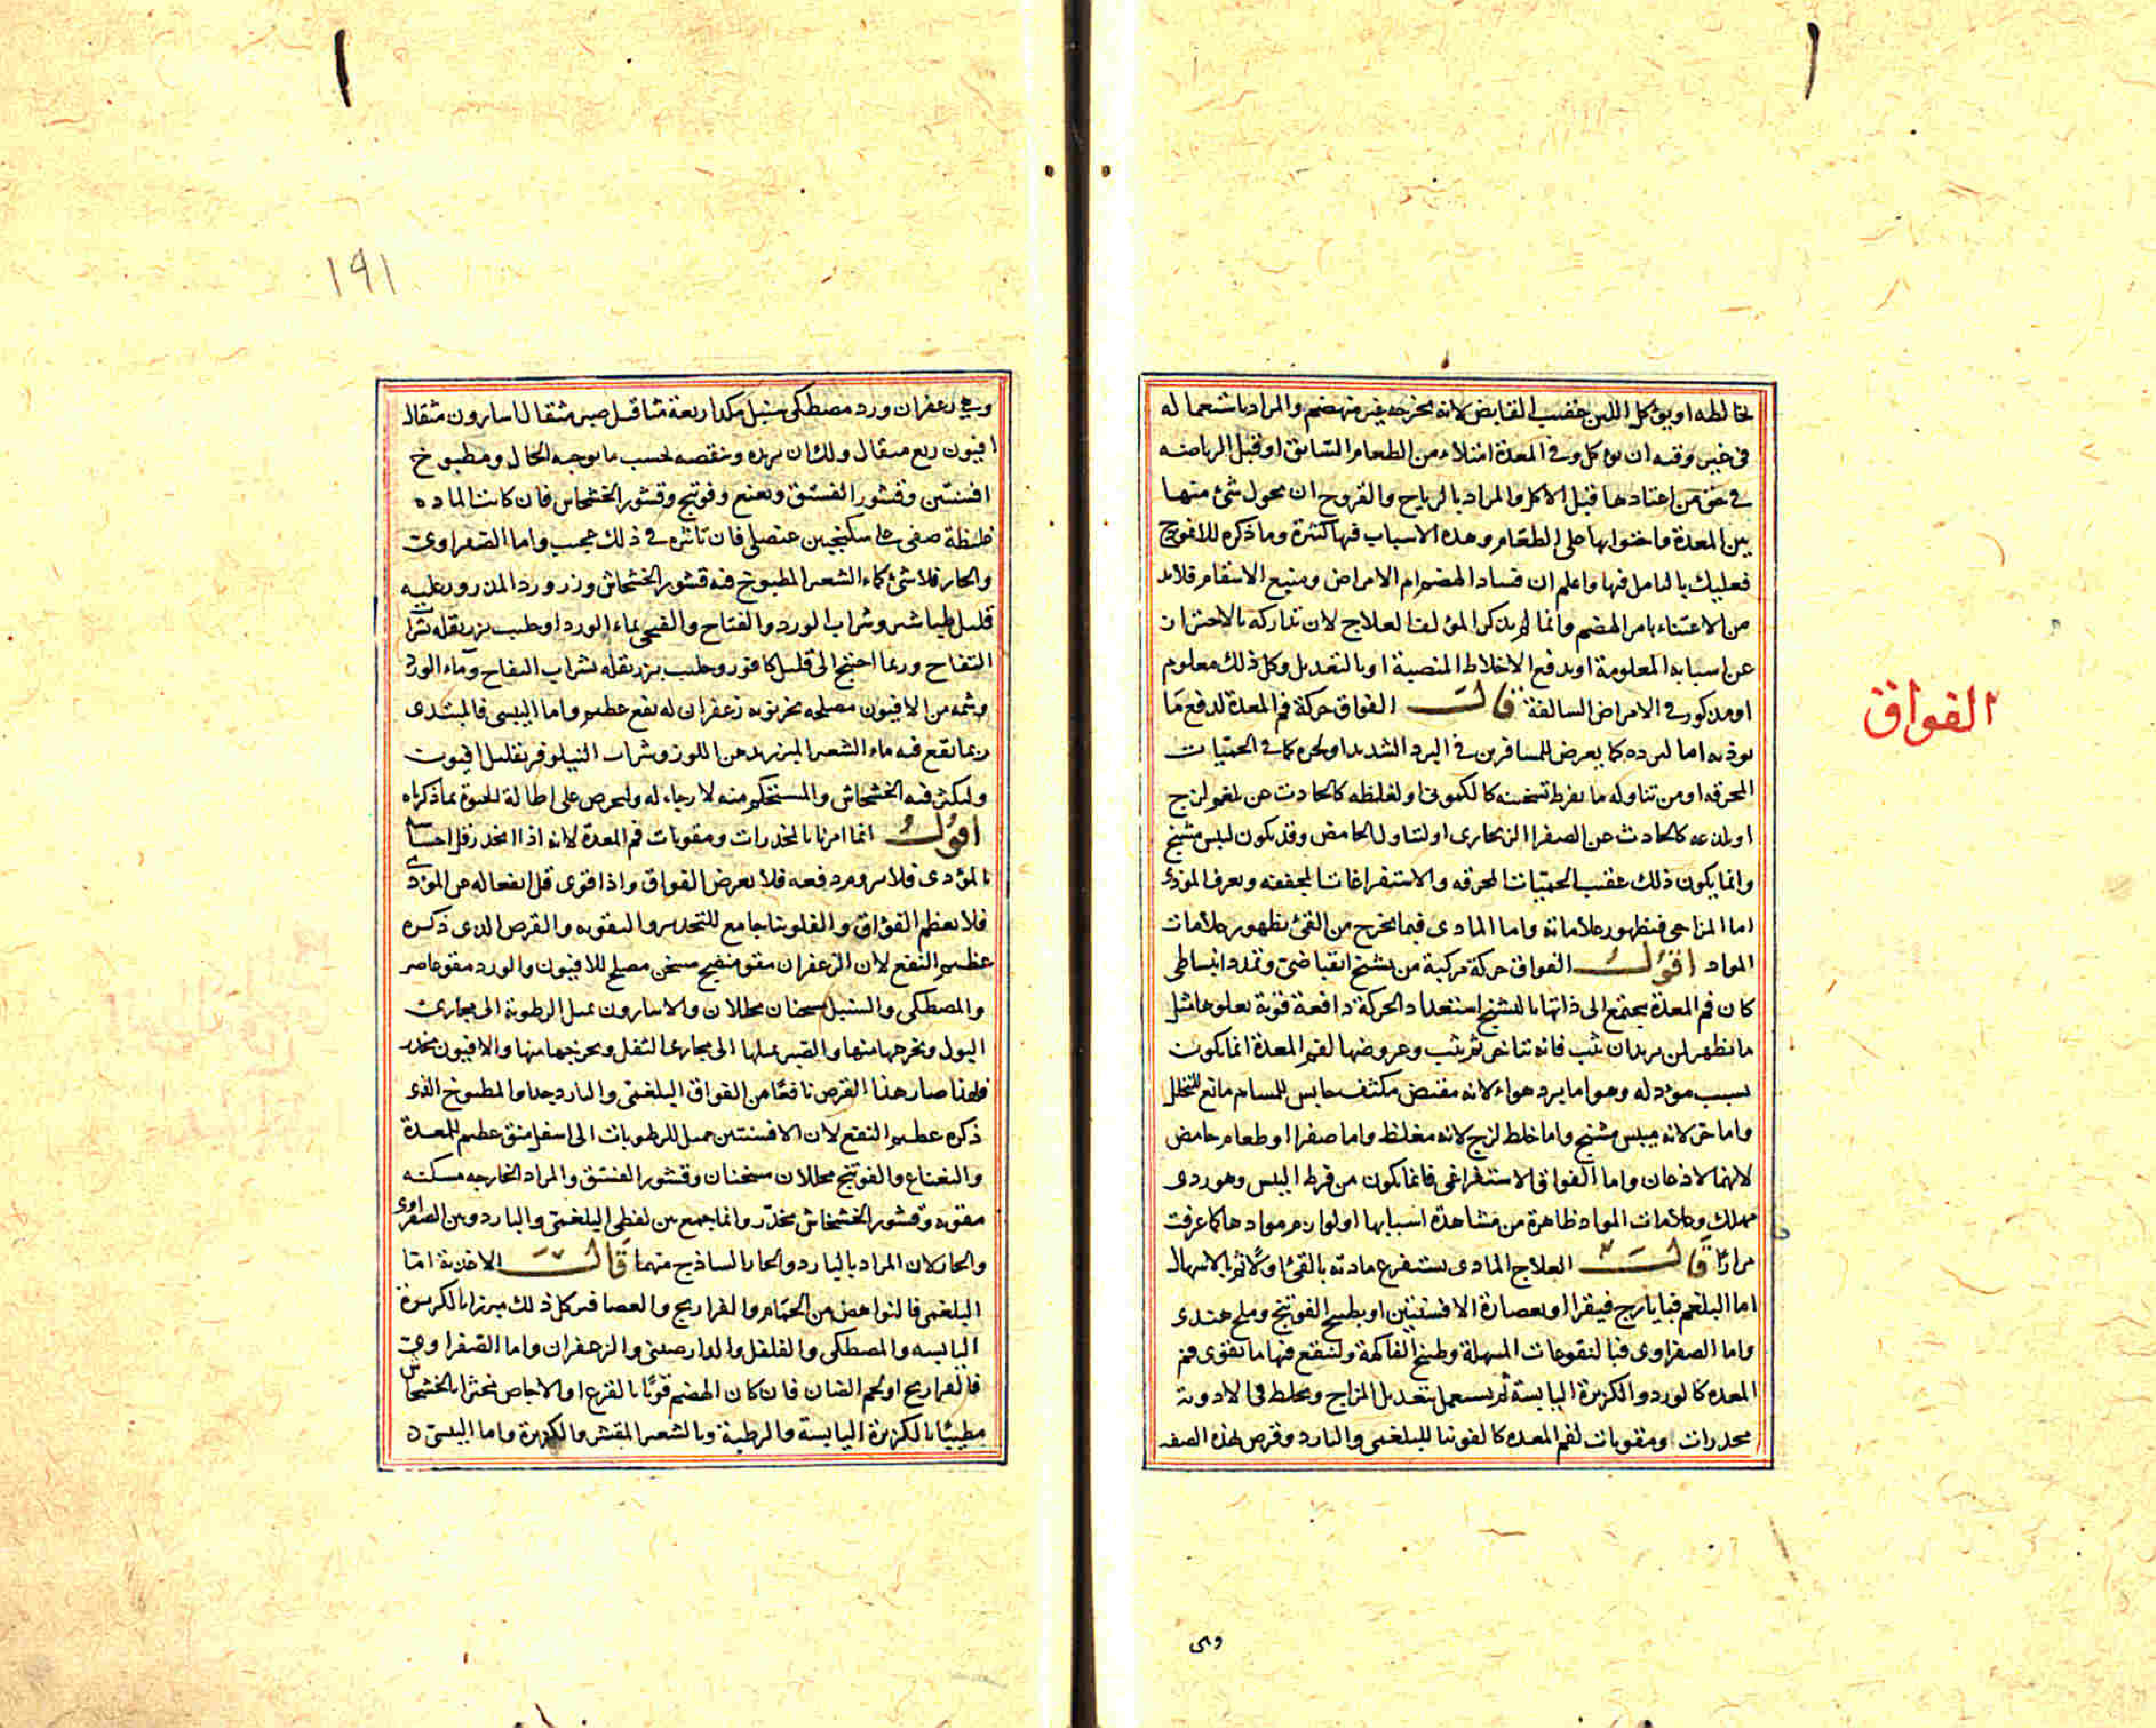 لخالطه او يؤكل اللبن عقيب القابض لانه يخرجه غير منهضم والمراد باستعماله
في غير وقته ان يوكل وفي المعدة امتلاء من الطعام السابق او قبل الرياضه
في حق من اعتادها قبل الاكل والمراد بالرياح والقروح ان يحول شئ منها
بين المعدة واحتوايها على الطعام وهذه الاسباب فيها كثرة وما ذكره للانموذج
فعليك بالتامل فيها واعلم ان فساد الهضم ام الامراض ومنبع الاسقام فلا بد
من الاعتناء بامر الهضم وانما لم يذكر المؤلف العلاج لان تداركه بالاحتراز
عن اسبابه المعلومة او بدفع الاخلاط المنصبة او بالتعديل وكل ذلك معلوم
او مذكور في الامراض السالفة قال الفواق حركة فم المعدة لدفع ما
يوذيه اما لبرده كما يعرض للمسافرين في البرد الشديد او لحره كما في الحميات
المحرقه او من تناوله ما يفرط تسخينه كالكموني او لغلظه كالحادث عن بلغم لزج
او لذعه كالحادث عن الصفرا الزنجاري او لتناول الحامض وقد يكون ليبس مشنج
وانما يكون ذلك عقيب الحميات المحرقه والاستفراغات المجففه ويعرف الموذى
اما المزاجي فبظهور علاماته واما المادي فبما يخرج من القئ بظهور علامات
المواد اقول الفواق حركة مركبة من تشنج انقباضي وتمدد انبساطي
كان فم المعدة يجتمع الى ذاتها بالتشنج استعدادا لحركة دافعة قوية يعلوها مثل
ما يظهر لمن يريد ان يثب فانه يتاخر ثم يثب وعروضها لفم المعدة انما يكون
بسبب موذ له وهو اما برد هواء لانه مقبض مكثف حابس للمسام مانع للتحلل
واما حر لانه ميبس مشنج واما خلط لزج لانه مغلظ واما صفرا او طعام حامض
لانهما لاذعان واما الفواق الاستفراغي فانما يكون من فرط اليبس وهو ردى
مهلك وعلامات المواد ظاهرة من مشاهدة اسبابها او لوازم موادها كما عرفت
مرارًا قال العلاج المادى يستفرغ مادته بالقئ اولًا ثم بالاسهال
اما البلغم فبايارج فيقرا او بعصارة الافسنتين او بطبيخ الفوتنج وملح هندى
واما الصفراوى فبالنقوعات المسهلة وطبيخ الفاكهة ولينقع فيها ما يقوى فم
المعده كالورد والكزبرة اليابسة ثم يستعمل بتعديل المزاج ويخلط في الادوية
مخدرات ومقويات لفم المعده كالفلونيا للبلغمى والبارد وقرص لهذه الصفه
وهى
الفواق
١٩١
وهي زعفران ورد مصطكى سنبل مكد اربعة مثاقيل صبر مثقال اسارون مثقال
افيون ربع مثقال ولك ان تزيده وتنقصه بحسب ما يوجبه الحال ومطبوخ
افسنتين وقشور الفستق ونعنع وفوتنج وقشور الخشخاش فان كانت الماده
غليظة صفى على سكنجبين عنصلى فان تاثيره في ذلك عجيب واما الصفراوى
والحار فلا شئ كماء الشعير المطبوخ فيه قشور الخشخاش وزر ورد المذرور عليه
قليل طباشير وشراب الورد والتفاح والقيحي بماء الورد او حليب بزر بقله بشراب
التفاح وربما احتيج الى قليل كافور وحليب بزر بقله بشراب التفاح وماء الورد
وشمه من الافيون مصلحه بخربوبه زعفران له نفع عظيم واما اليبسى فالمبتدى
ربما نفع فيه ماء الشعير المبزر بدهن اللوز وشراب النيلوفر بقليل افيون
وليكثر فيه الخشخاش والمستحكم منه لا رجاء له وليحرص على اطالة الحيوة بما ذكرناه
اقول انما امرنا بالمخدرات ومقويات فم المعدة لانه اذا انخدر قل احساسه
بالمؤذى فلا يروم دفعه فلا يعرض الفواق واذا قوى قل انفعاله عن المؤذى
فلا يعظم الفؤاق والفلونيا جامع للتخدير والتقويه والقرص الذى ذكره
عظيم النفع لان الزعفران مقو منضج مسخن مصلح للافيون والورد مقو عاصر
والمصطكى والسنبل مسخنان محللان والاسارون يميل الرطوبة الى مجارى
البول ويخرجها منها والصبر يميلها الى مجارى الثفل ويخرجها منها والافيون مخدر
فلهذا صار هذا القرص نافعًا من الفواق البلغمى والبارد جدا والمطبوخ الذى
ذكره عظيم النفع لان الافسنتين مميل للرطوبات الى اسفل منق عظيم للمعدة
والنعناع والفوتنج محللان مسخنان وقشور الفستق والمراد الخارجه مسكنه
مقويه وقشور الخشخاش مخدر وانما جمع بين لفظى البلغمى والبارد وبين الصفراوى
والحار لان المراد بالبارد والحار الساذج منهما قال الاغذية اما
البلغمى فالنواهض من الحمام والفراريج والعصافير كل ذلك مبزرا بالكزبرة
اليابسه والمصطكى والفلفل والدارصينى والزعفران واما الصفراوى
فالفراريج او لحم الضان فان كان الهضم قويًا بالقرع او الاجاص مخثرا بالخشخاش
مطيبًا بالكزبرة اليابسة والرطبة وبالشعير المقشر والكزبرة واما اليبسى د